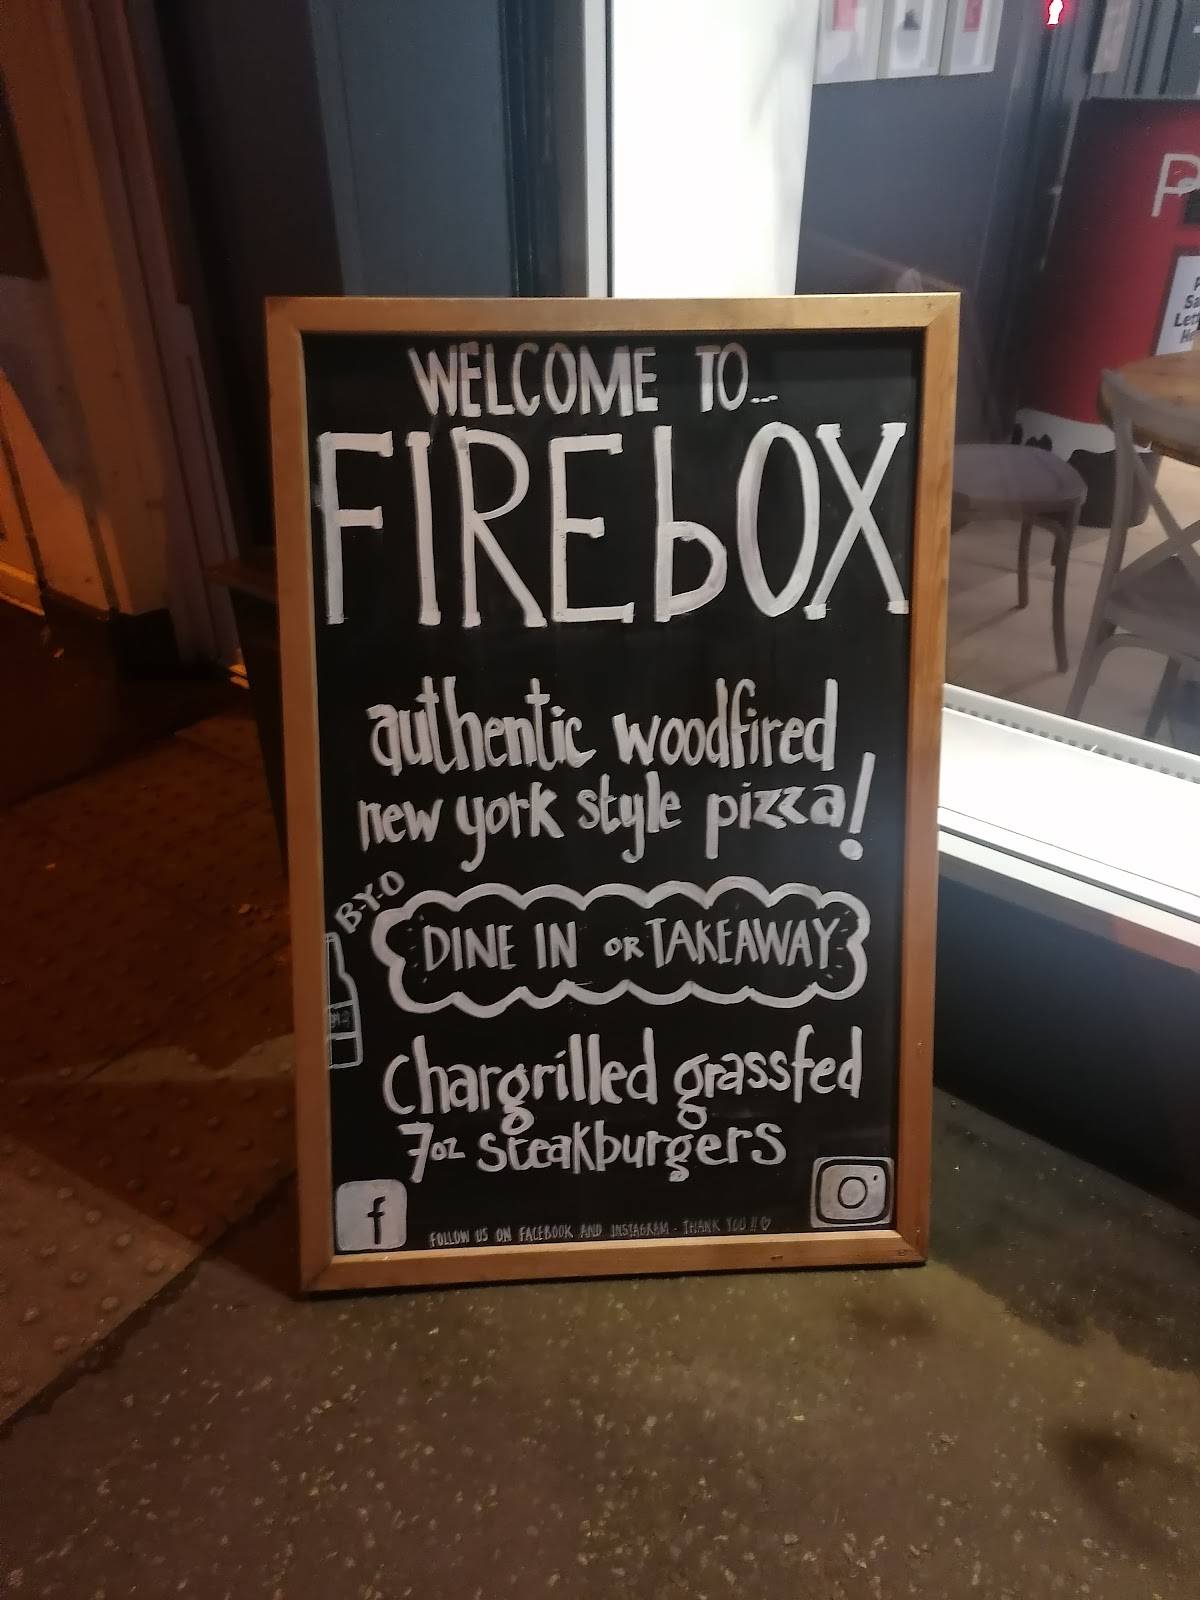 WELCOME TO...
FIREbOX
authentic woodfired
new york style pizza!
B-Y-O
DINE IN OR TAKEAWAY
chargrilled grassfed
7oz steakburgers
f
FOLLOW US ON FACEBOOK AND INSTAGRAM - THANK YOU !! ♡